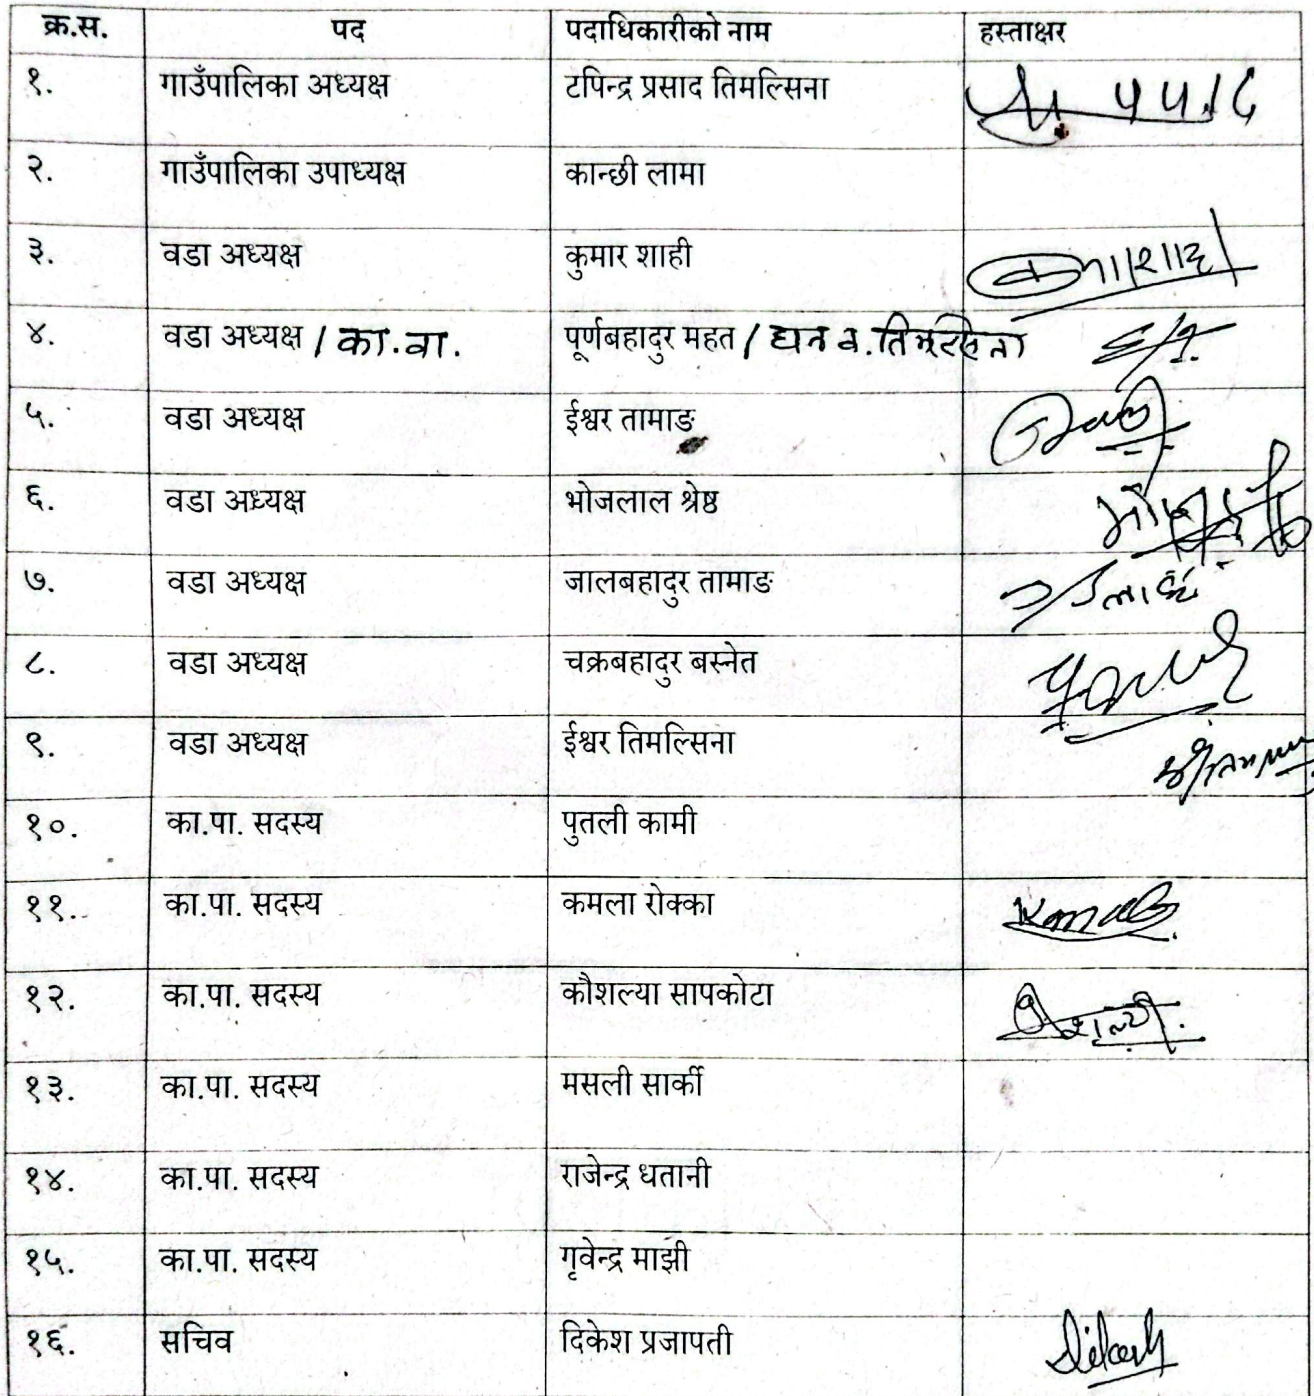 क्र.स. पद पदाधिकारीको नाम हस्ताक्षर
१. गाउँपालिका अध्यक्ष टपिन्द्र प्रसाद तिमल्सिना
२. गाउँपालिका उपाध्यक्ष कान्छी लामा
३. वडा अध्यक्ष कुमार शाही
४. वडा अध्यक्ष / का.वा. पूर्णबहादुर महत / धन ब. तिमल्सिना
५. वडा अध्यक्ष ईश्वर तामाङ
६. वडा अध्यक्ष भोजलाल श्रेष्ठ
७. वडा अध्यक्ष जालबहादुर तामाङ
८. वडा अध्यक्ष चक्रबहादुर बस्नेत
९. वडा अध्यक्ष ईश्वर तिमल्सिना
१०. का.पा. सदस्य पुतली कामी
११. का.पा. सदस्य कमला रोक्का
१२. का.पा. सदस्य कौशल्या सापकोटा
१३. का.पा. सदस्य मसली सार्की
१४. का.पा. सदस्य राजेन्द्र धतानी
१५. का.पा. सदस्य गृवेन्द्र माझी
१६. सचिव दिकेश प्रजापती